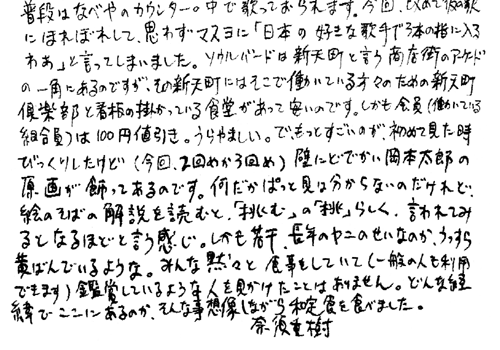 普段はなべやのカウンター。中で歌っておられます。今回、改めて彼の歌
にほればれして、思わずマスヨに「日本の好きな歌手で3本の指に入る
わぁ」と言ってしまいました。ソウルバードは新天町と言う商店街のアーケード
の一角にあるのですが、その新天町にはそこで働いている方々のための新天町
倶楽部と看板の掛かっている食堂があって安いのです。しかも会員(働いている
組合員)は100円値引き。うらやましい。でもっとすごいのが、初めて見た時
びっくりしたけど(今回、2回めか3回め)壁にどでかい岡本太郎の
原画が飾ってあるのです。何だかぱっと見は分からないのだけれど、
絵のそばの解説を読むと、「挑む」の「挑」らしく、言われてみ
るとなるほどと言う感じ。しかも若干、長年のヤニのせいなのか、うっすら
黄ばんでいるような。みんな黙々と食事をしていて(一般の人も利用
できます)鑑賞しているような人を見かけたことはありません。どんな経
緯でここにあるのか、そんな事想像しながら和定食を食べました。
奈須重樹